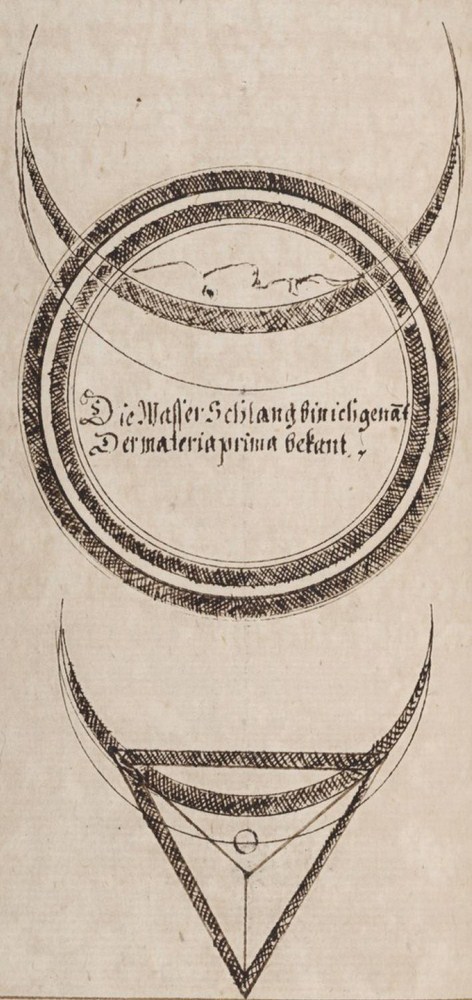 Die Wasser Schlang bin ich genāt
Der materia prima bekant.